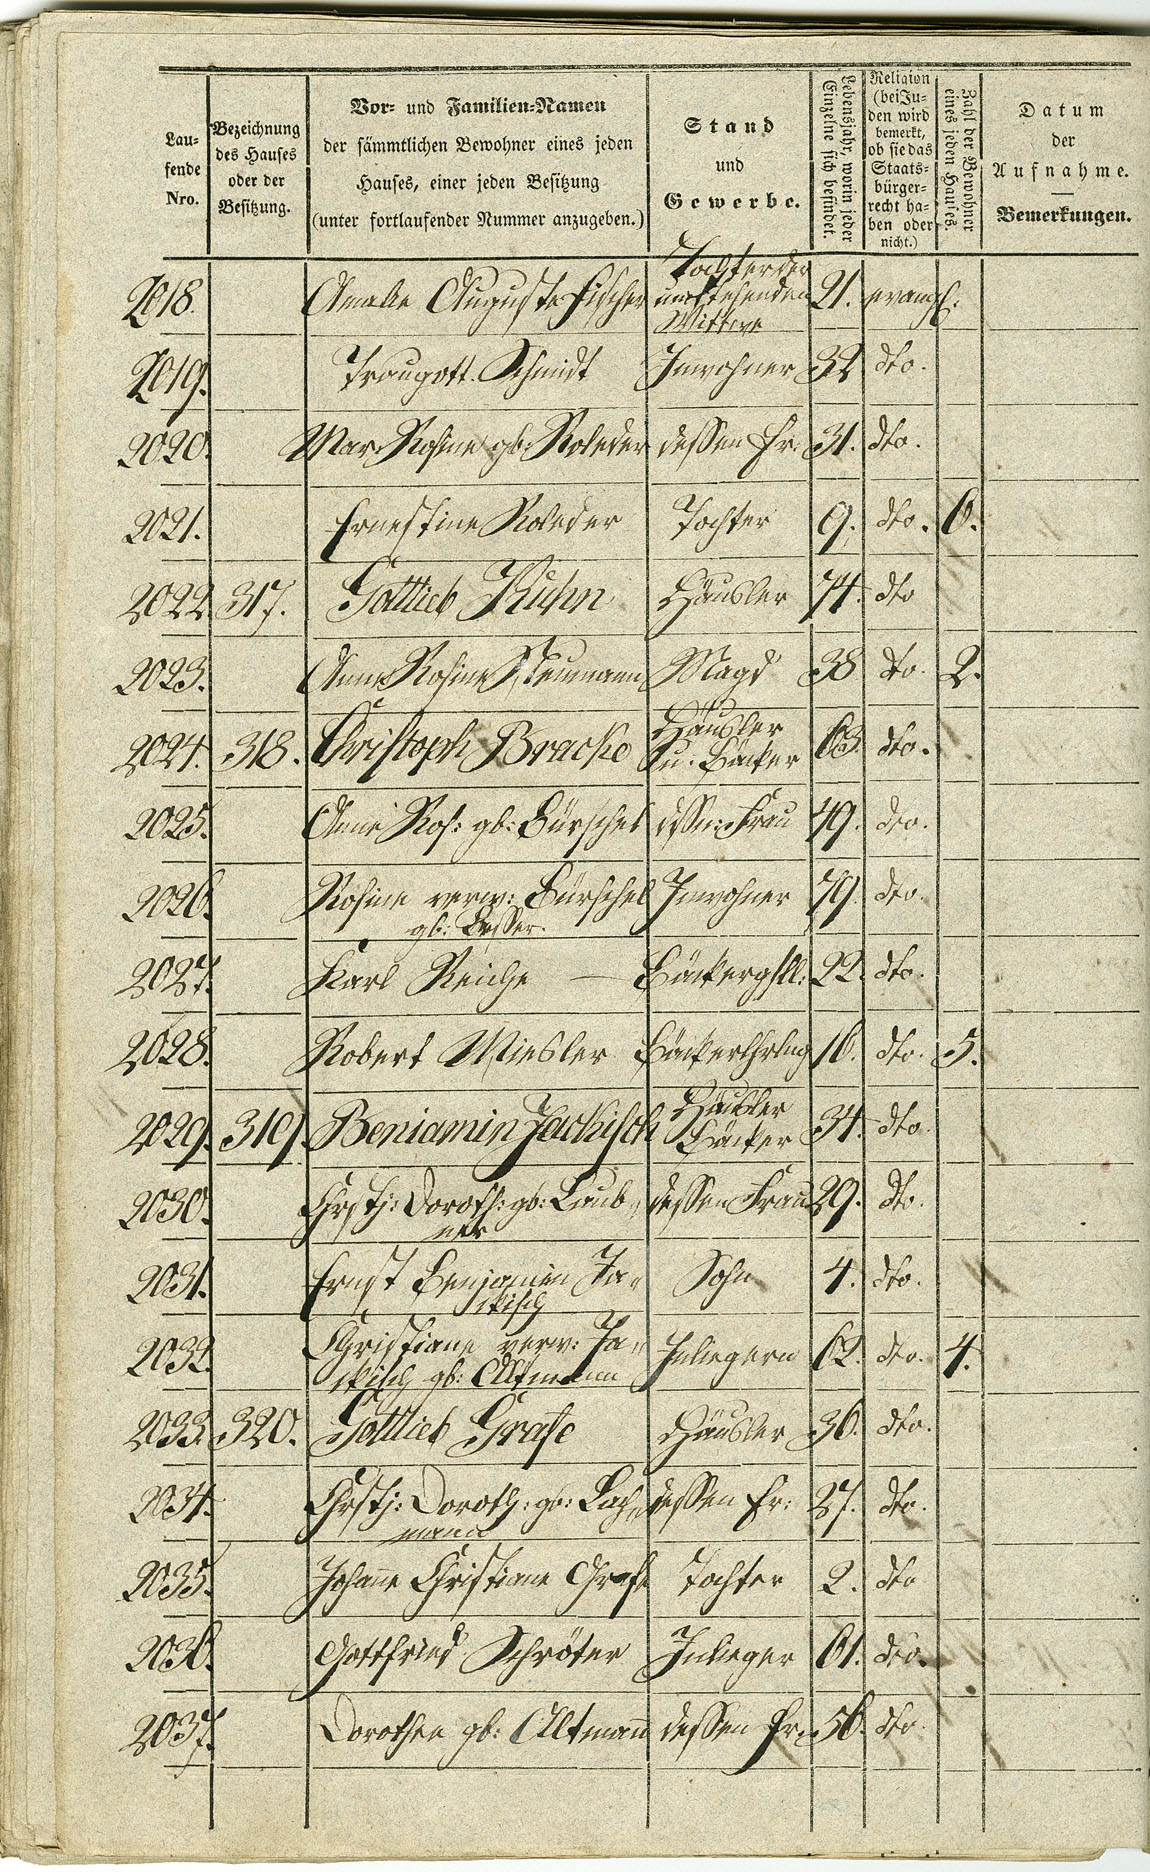 Lau-
fende
Nro.
Bezeichnung
des Hauses
oder der
Besitzung.
Vor- und Familien-Namen
der sämmtlichen Bewohner eines jeden
Hauses, einer jeden Besitzung
(unter fortlaufender Nummer anzugeben.)
Stand
und
Gewerbe.
Lebensjahr, worin jeder
Einzelne sich befindet.
Religion
(bei Ju-
den wird
bemerkt,
ob sie das
Staats-
bürger-
recht ha-
ben oder
nicht.)
Zahl der Bewohner
eines jeden Hauses.
Datum
der
Aufnahme.
Bemerkungen.
2018. Amalie Auguste Fischer Tochter der umstehenden Wittwe 21. evangl.
2019. Traugott Schmidt Inwohner 32 dto.
2020. Mar. Rosine gb. Roleder dessen Fr. 31. dto.
2021. Ernestine Roleder Tochter 9. dto. 6.
2022. 317. Gottlieb Kuhn Häusler 74. dto
2023. Anne Rosine Neumann Magd 38 dto. 2.
2024. 318. Christoph Bracke Häusler u. Bäcker 63. dto.
2025. Anne Ros: gb: Bürschel dessen Frau 49. dto.
2026. Rosine verw: Bürschel gb: Besser. Inwohner 79. dto.
2027. Karl Reiche — Bäckergsll: 22. dto.
2028. Robert Miesler Bäckerlhrlng 16. dto. 5.
2029. 319. Beniamin Jackisch Häusler Bäcker 34. dto.
2030. Chrstj: Doroth: gb: Laub- ner dessen Frau 29. dto.
2031. Ernst Benjamin Ja- ckisch Sohn 4. dto.
2032. Christiane verw: Ja- ckisch gb: Altmann Inliegern 62. dto. 4.
2033. 320. Gottlieb Grafe Häusler 36. dto.
2034. Chrstj: Doroth: gb: Bach- mann dessen Fr: 27. dto.
2035. Johane Christiane Grafe Tochter 2. dto
2036. Gottfried Schröter Inlieger 61. dto.
2037. Dorothea gb: Altmann dessen Fr. 56. dto.